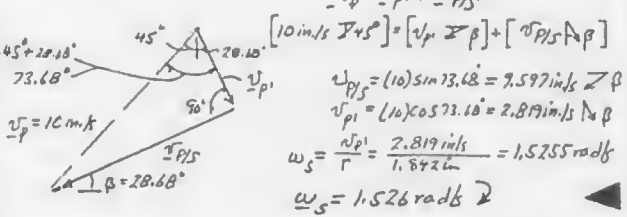 [10 in./s ⦫45°] = [v_P' ⦪ β] + [v_P/S ⦫ β]
45°
28.68°
45°+28.68°
73.68°
v_P'
90°
v_P = 10 in./s
v_P/S
β = 28.68°
v_P/S = (10) sin 73.68° = 9.597 in/s ∠ β
v_P' = (10) cos 73.68° = 2.819 in./s β
ω_S = v_P'/r = 2.819 in/s / 1.842 in = 1.5255 rad/s
ω_S = 1.526 rad/s ⤵